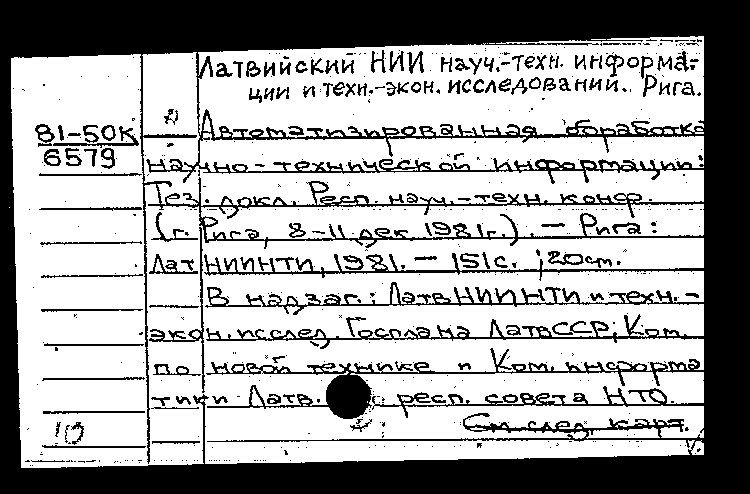 Латвийский НИИ науч.-техн. информа-
ции и техн.-экон. исследований. Рига.
81-50К
6579
2) Автоматизированная обработка
научно-технической информации:
Тез. докл. Респ. науч.-техн. конф.
(г. Рига, 8-11 дек. 1981г.). — Рига:
ЛатНИИНТИ, 1981. — 151с. ; 20см.
В надзаг.: ЛатвНИИНТИ и техн.-
экон. исслед. Госплана ЛатвССР; Ком.
по новой технике и Ком. информа
тики Латв. респ. совета НТО.
См след. карт.
10